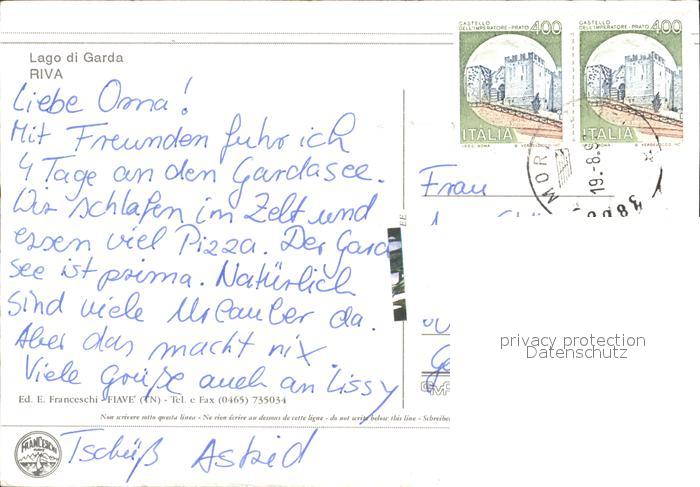 CASTELLO
DELL'IMPERATORE - PRATO 400
CASTELLO
DELL'IMPERATORE - PRATO 400
ITALIA
ITALIA
Lago di Garda
RIVA
Liebe Oma!
Mit Freunden fuhr ich
4 Tage an den Gardasee.
Wir schlafen im Zelt und
essen viel Pizza. Der Garda
see ist prima. Natürlich
sind viele Urlauber da.
Aber das macht nix.
Viele Grüße auch an Lissy
Tschüß Astrid
Frau
MOR
19.-8.9
privacy protection
Datenschutz
Ed. E. Franceschi - FIAVE' (TN) - Tel. e Fax (0465) 735034
Non scrivere sotto questa linea - Ne rien écrire au dessous de cette ligne - do not write below this line - Schreiben
FRANCESCHI